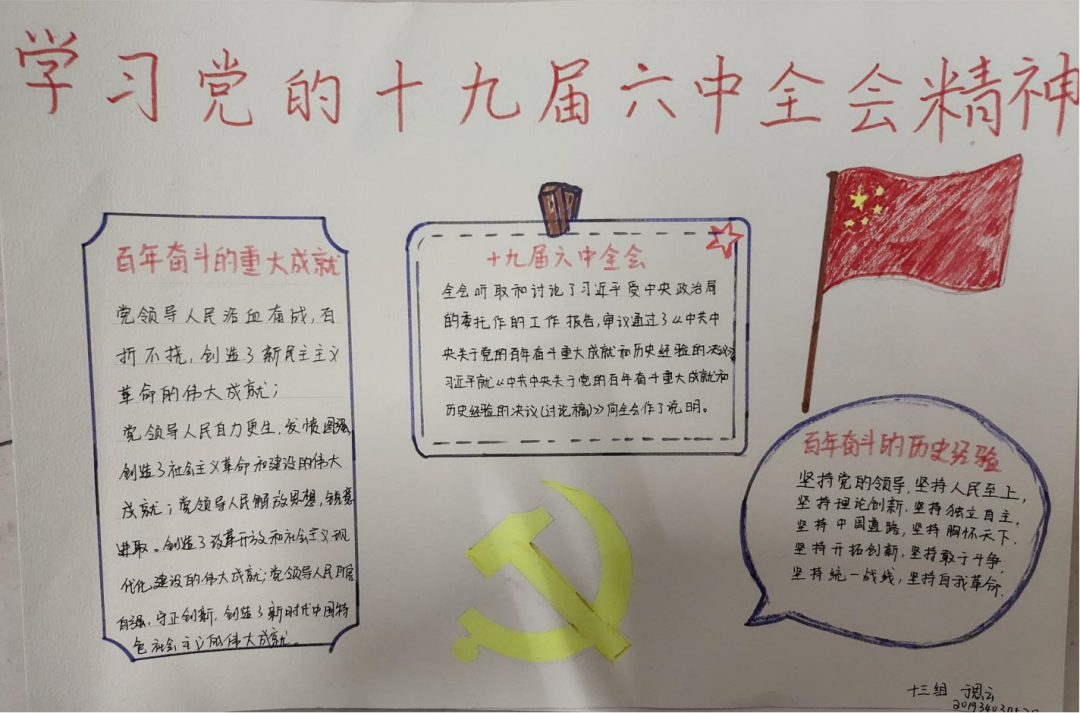 学习党的十九届六中全会精神
百年奋斗的重大成就
党领导人民浴血奋战,百
折不挠,创造了新民主主义
革命的伟大成就;
党领导人民自力更生,发愤图强,
创造了社会主义革命和建设的伟大
成就;党领导人民解放思想,锐意
进取。创造了改革开放和社会主义现
代化建设的伟大成就;党领导人民
自强,守正创新,创造了新时代中国特
色社会主义的伟大成就。
十九届六中全会
全会听取和讨论了习近平受中央政治局
的委托作的工作报告,审议通过了《中共中
央关于党的百年奋斗重大成就和历史经验的决议》,
习近平就《中共中央关于党的百年奋斗重大成就和
历史经验的决议(讨论稿)》向全会作了说明。
百年奋斗的历史经验
坚持党的领导,坚持人民至上,
坚持理论创新,坚持独立自主,
坚持中国道路,坚持胸怀天下,
坚持开拓创新,坚持敢于斗争,
坚持统一战线,坚持自我革命.
十三组